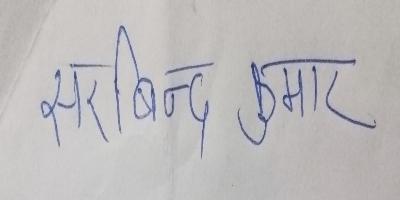 अरबिन्द कुमार